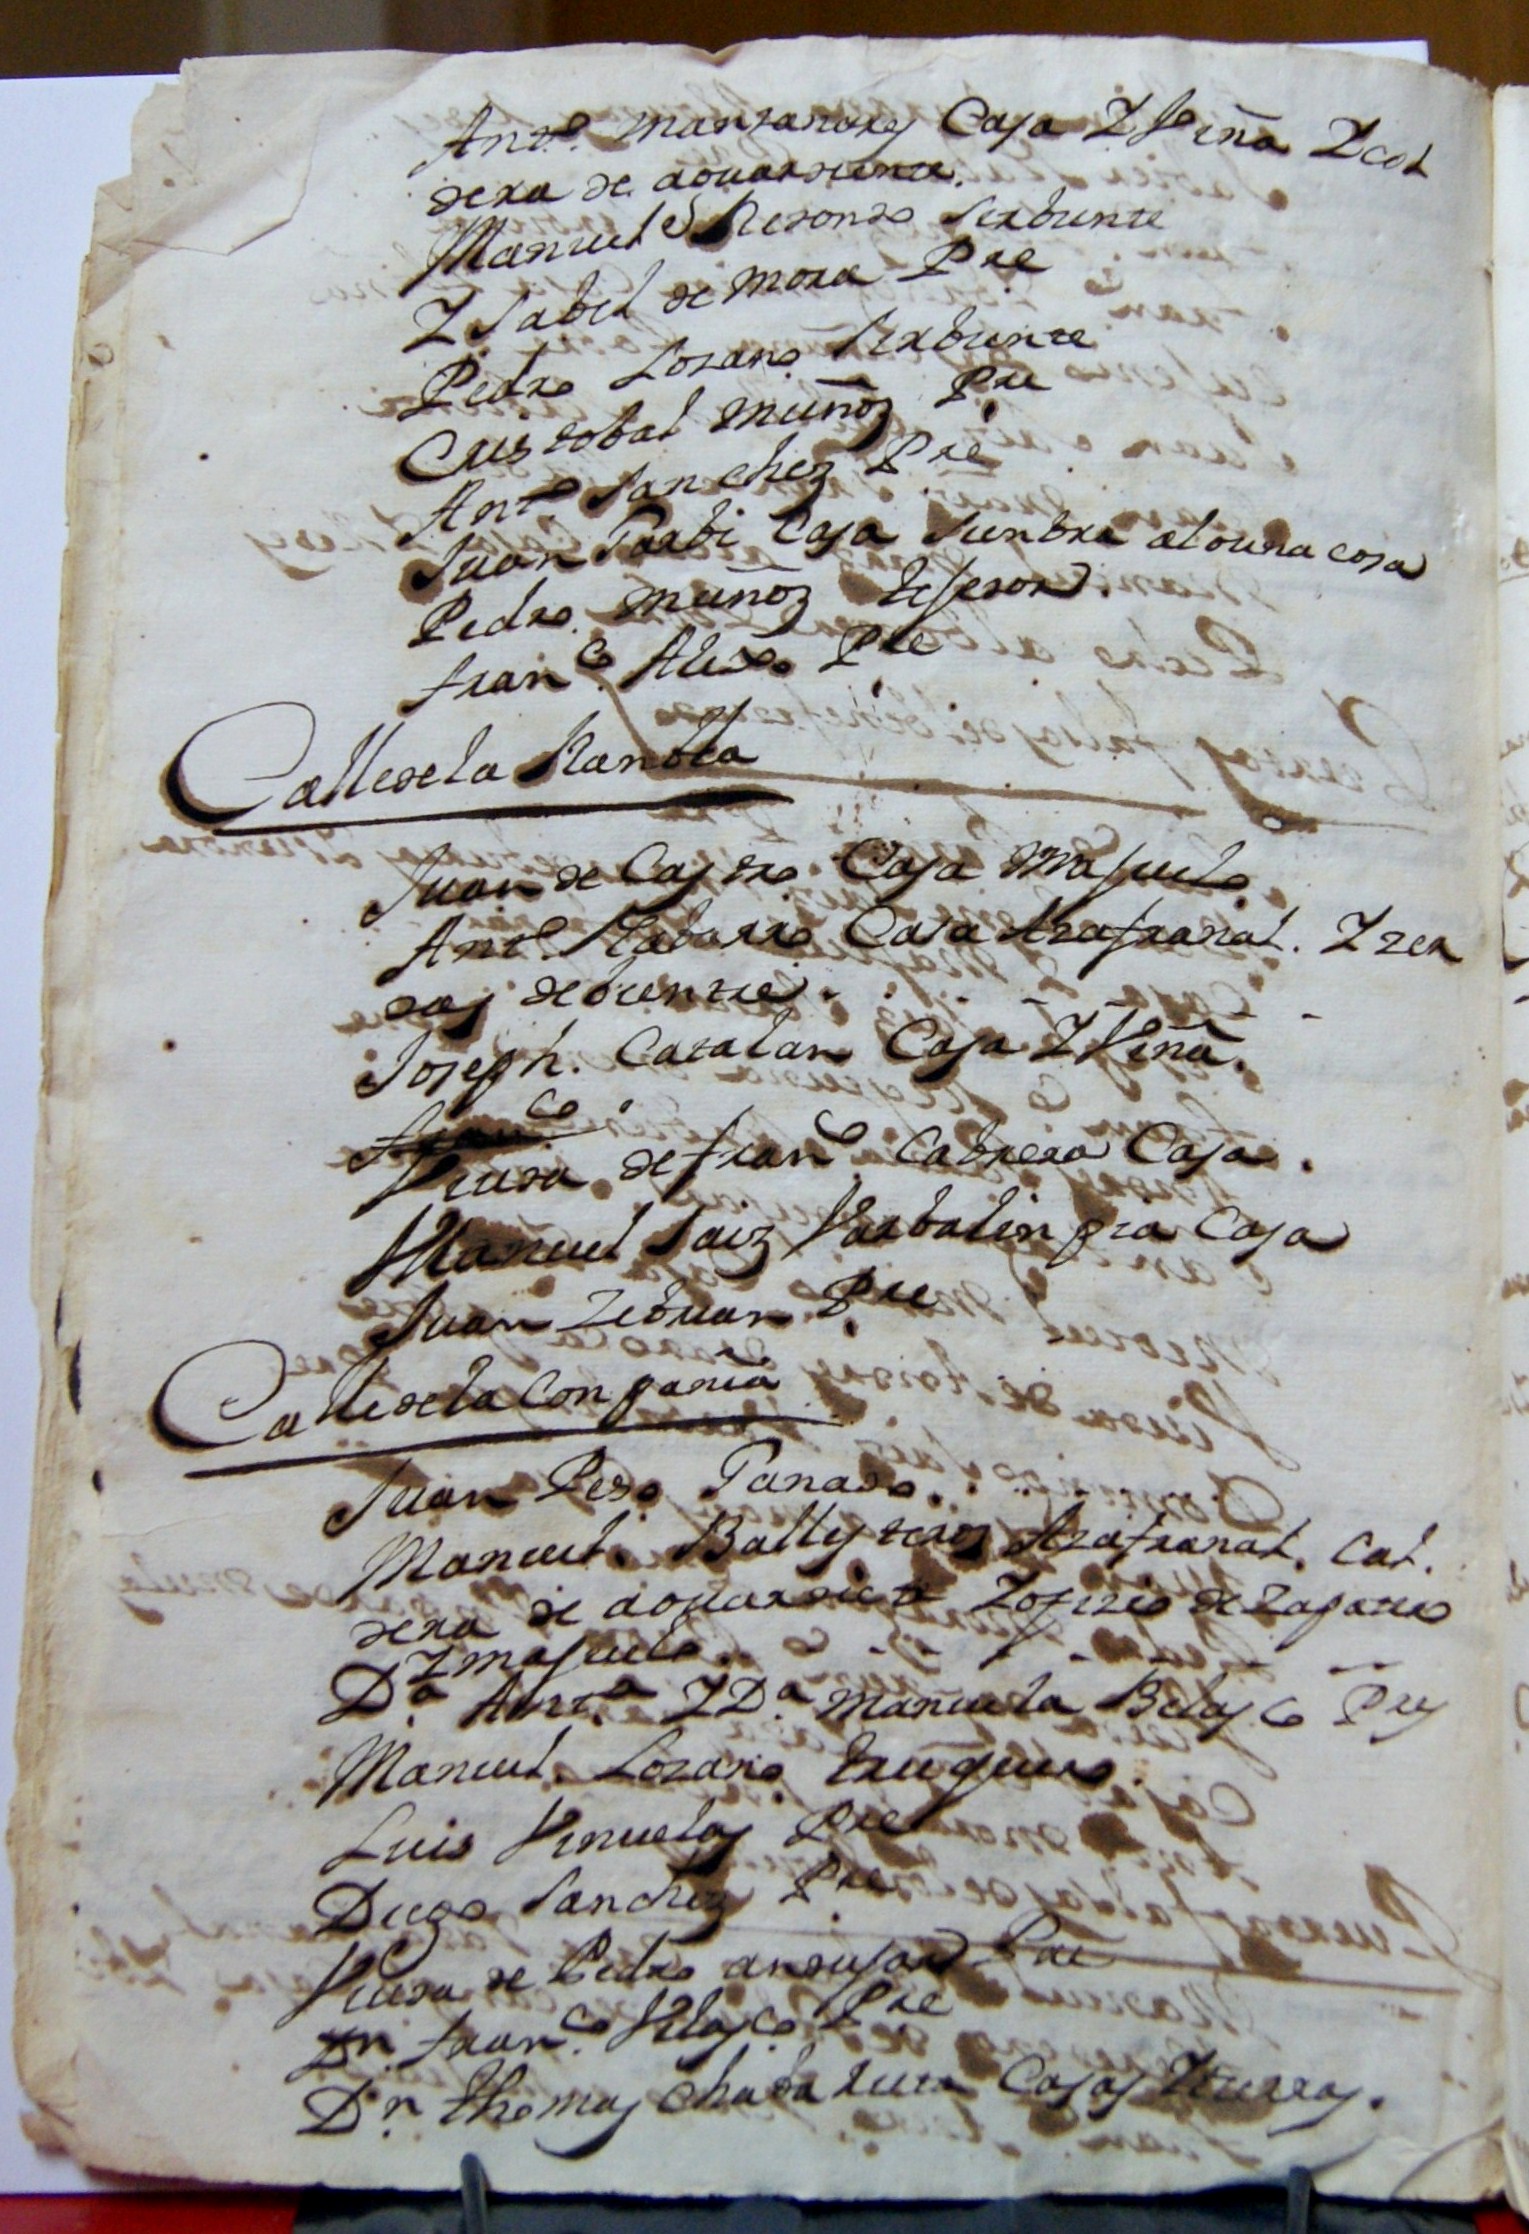 Antº. Manzanares Casa Y Viña Y cal
dera de aguardiente.
Manuel Redondo Sirbiente
Ysabel de Mora Pre
Pedro Lozano Sirbiente
Cristobal Muñoz Pre
Antº Sanchez Pre
Juan Casa siembra alguna cosa
Pedro Muñoz tejedor
Franco. Alexo Pre
Calle de la Ranbla
Juan de Castro Casa Majuelo
Antº Nabarro Casa Azafranal. Y zer
dos de bientre.
Joseph. Catalan Casa Y Viña.
Franco
Viuda de Franco Cabrera Casa.
Manuel Saiz Casa
Juan Zebrian Pre
Calle de la Conpañia
Juan Pedro
Manuel. Ballesteros Azafranal. Cal.
dera de aguardiente Y ofizio de Zapatero
Y majuelo.
Dª Antª Y Dª Manuela Belasco Pres
Manuel. Lozano
Luis Vinuelas Pre
Diego Sanchez Pre
Viuda de Pedro andujar Pre
Dn Franco. Velasco Pre
Dn. thomas Casas Y tierras.